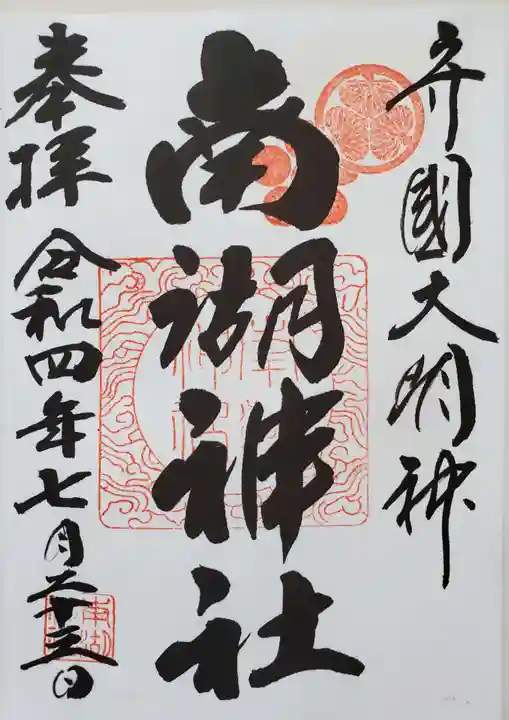 守國大明神
南湖神社
奉拝 令和四年七月二十三日